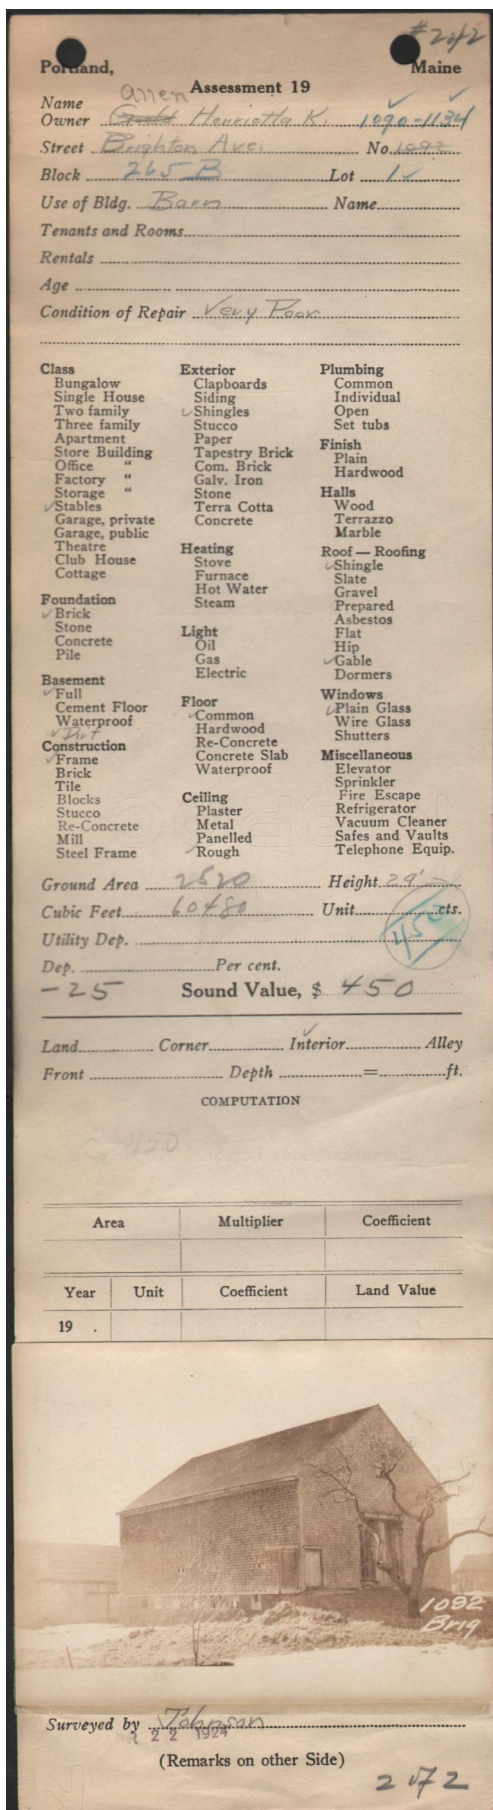 # 2 of 2
Portland, Maine
Assessment 19
Allen
Name
Owner Gould Henrietta K. 1090-1134
Street Brighton Ave. No. 1092
Block 265 B Lot 1
Use of Bldg. Barn Name
Tenants and Rooms
Rentals
Age
Condition of Repair Very Poor
Class
Bungalow
Single House
Two family
Three family
Apartment
Store Building
Office "
Factory "
Storage "
✓Stables
Garage, private
Garage, public
Theatre
Club House
Cottage
Foundation
✓Brick
Stone
Concrete
Pile
Basement
✓Full
Cement Floor
Waterproof
✓Dirt
Construction
✓Frame
Brick
Tile
Blocks
Stucco
Re-Concrete
Mill
Steel Frame
Exterior
Clapboards
Siding
✓Shingles
Stucco
Paper
Tapestry Brick
Com. Brick
Galv. Iron
Stone
Terra Cotta
Concrete
Heating
Stove
Furnace
Hot Water
Steam
Light
Oil
Gas
Electric
Floor
✓Common
Hardwood
Re-Concrete
Concrete Slab
Waterproof
Ceiling
Plaster
Metal
Panelled
✓Rough
Plumbing
Common
Individual
Open
Set tubs
Finish
Plain
Hardwood
Halls
Wood
Terrazzo
Marble
Roof — Roofing
✓Shingle
Slate
Gravel
Prepared
Asbestos
Flat
Hip
✓Gable
Dormers
Windows
✓Plain Glass
Wire Glass
Shutters
Miscellaneous
Elevator
Sprinkler
Fire Escape
Refrigerator
Vacuum Cleaner
Safes and Vaults
Telephone Equip.
Ground Area 2520 Height 24'
Cubic Feet 60480 Unit cts.
450
Utility Dep.
Dep. Per cent.
-25 Sound Value, $ 450
Land Corner Interior Alley
Front Depth = ft.
COMPUTATION
450
Area Multiplier Coefficient
Year Unit Coefficient Land Value
19 .
1092
Brig
Surveyed by Johnson
22 1924
(Remarks on other Side)
2 of 2